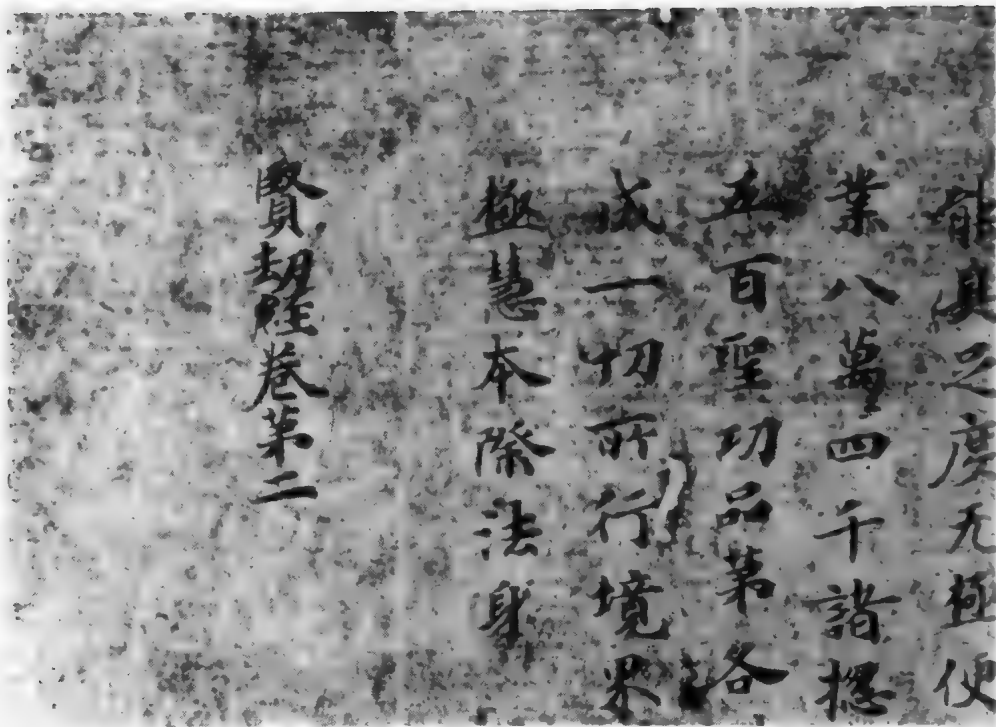 能具之度无極便
業八萬四千諸揔
五百聖功品第各
成一切所行境界
極慧本際法身
賢劫經卷第二